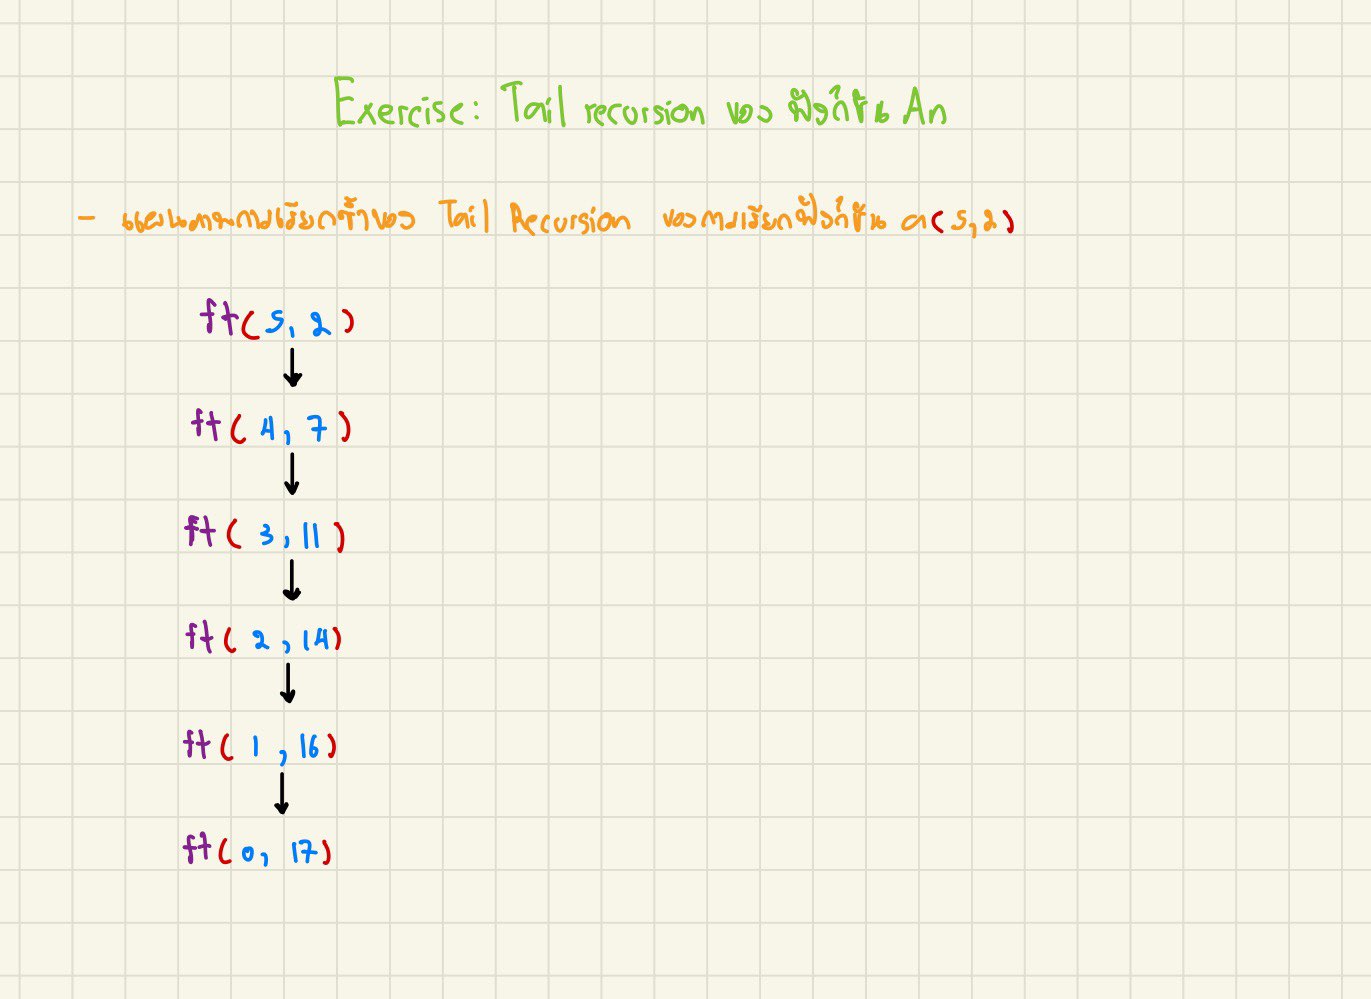 Exercise: Tail recursion ของ ฟังก์ชัน An
- แผนภาพการเรียกซ้ำของ Tail Recursion ของการเรียกฟังก์ชัน a(5,2)
ft(5, 2)
ft(4, 7)
ft(3, 11)
ft(2, 14)
ft(1, 16)
ft(0, 17)